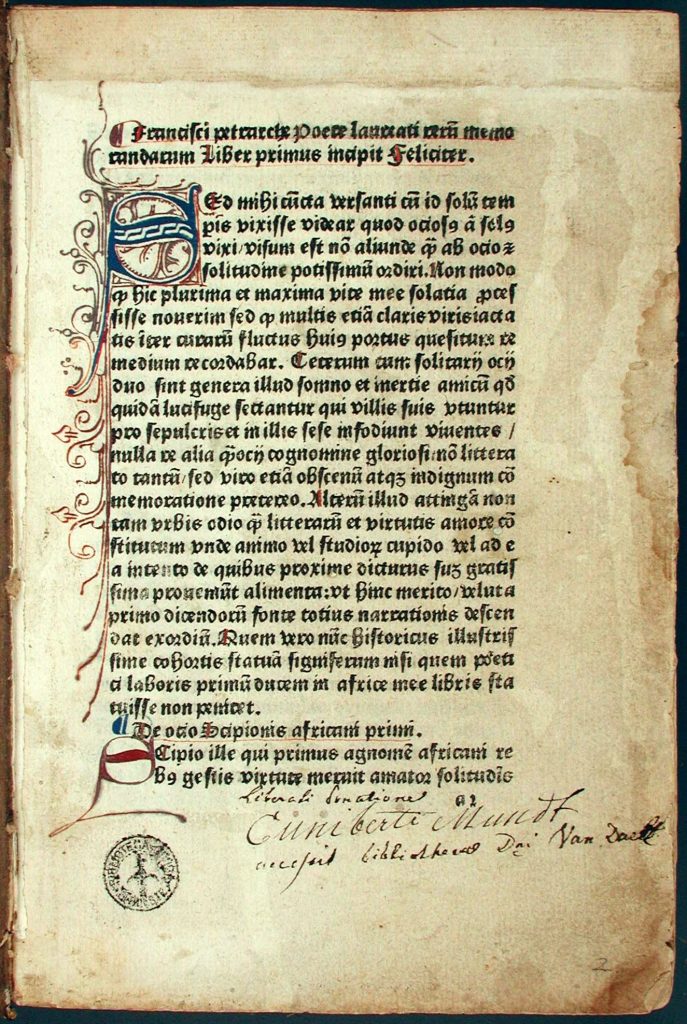 Francisci petrarche Poete laureati rerū memo
randarum Liber primus incipit Feliciter.
SEd mihi cūcta versanti cū id solū tem
pꝰis vixisse videar quod ociosꝰ ā selꝰ
vixi/visum est nō aliunde qꝫ̄ ab ocio ⁊
solitudine potissimū ordiri. Non modo
ꝙ hic plurima et maxima vite mee solatia ꝓces
sisse nouerim sed ꝙ multis etiā claris viris iacta
tis īter curarū fluctus huiꝰ portus quesiture re
medium recordabar. Ceterum cum solitarij ocij
duo sint genera illud somno et inertie amicū qd̄
quidā lucifuge sectantur qui villis suis vtuntur
pro sepulcris et in illis sese infodiunt viuentes /
nulla re alia qꝫ̄ ocij cognomine gloriosi/nō littera
to tantū/sed viro etiā obscenū atqꝫ indignum cō
memoratione pretereo. Alterū illud attingā non
tam vrbis odio qꝫ̄ litterarū et virtutis amore cō
stitutum vnde animo vel studioꝝ cupido vel ad e
a intento de quibus proxime dicturus suꝫ gratis
sima proueniūt alimenta:vt hinc merito/velut a
primo dicendorū fonte totius narrationis descen
dat exordiū. Quem vero nūc historicus illustris
sime cohortis statuā signiferum nisi quem poeti
ci laboris primū ducem in africe mee libris sta
tuisse non penitet.
De ocio Scipionis africani primi.
SCipio ille qui primus agnomē africani re
bꝰ gestis virtute meruit amator solitudīs
a2
Liberali Donatione
Cuniberti Mundt
accessit bibliothecae Dni Van Daele
2